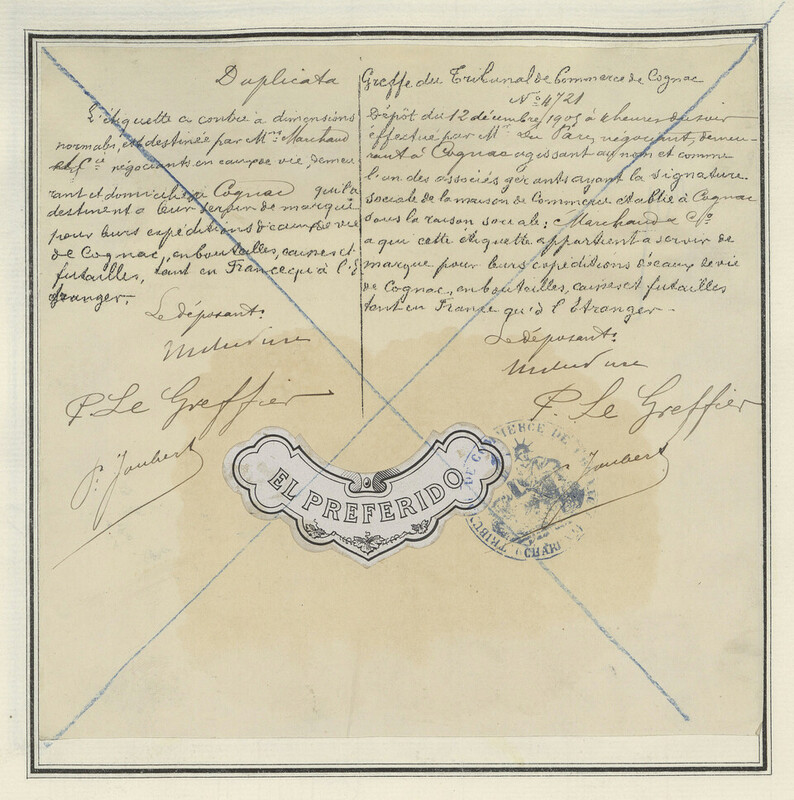 Duplicata
L'étiquette ci contre à dimensions
normales, est destinée par Mrs Marchaud
et Cie négociants en eau de vie, demeu
rant et domiciliés à Cognac qu'ils
destinent à leur servir de marque
pour leurs expéditions d'eaux de vie
de Cognac, en bouteilles, caisses et
futailles, tant en France qu'à l'É
tranger.
Le déposant:
P. Le Greffier
P. Joubert
Greffe du Tribunal de Commerce de Cognac
No 4721
Dépôt du 12 décembre 1905 à heures du soir
effectué par Mr négociant, demeu-
rant à Cognac agissant au nom et comme
l'un des associés gérants ayant la signature
sociale de la maison de Commerce établie à Cognac
sous la raison sociale: Marchaud & Cie
à qui cette étiquette appartient à servir de
marque pour leurs expéditions d'eaux de vie
de Cognac, en bouteilles, caisses et futailles
tant en France qu'à l'Étranger.
Le déposant:
P. Le Greffier
P. Joubert
EL PREFERIDO